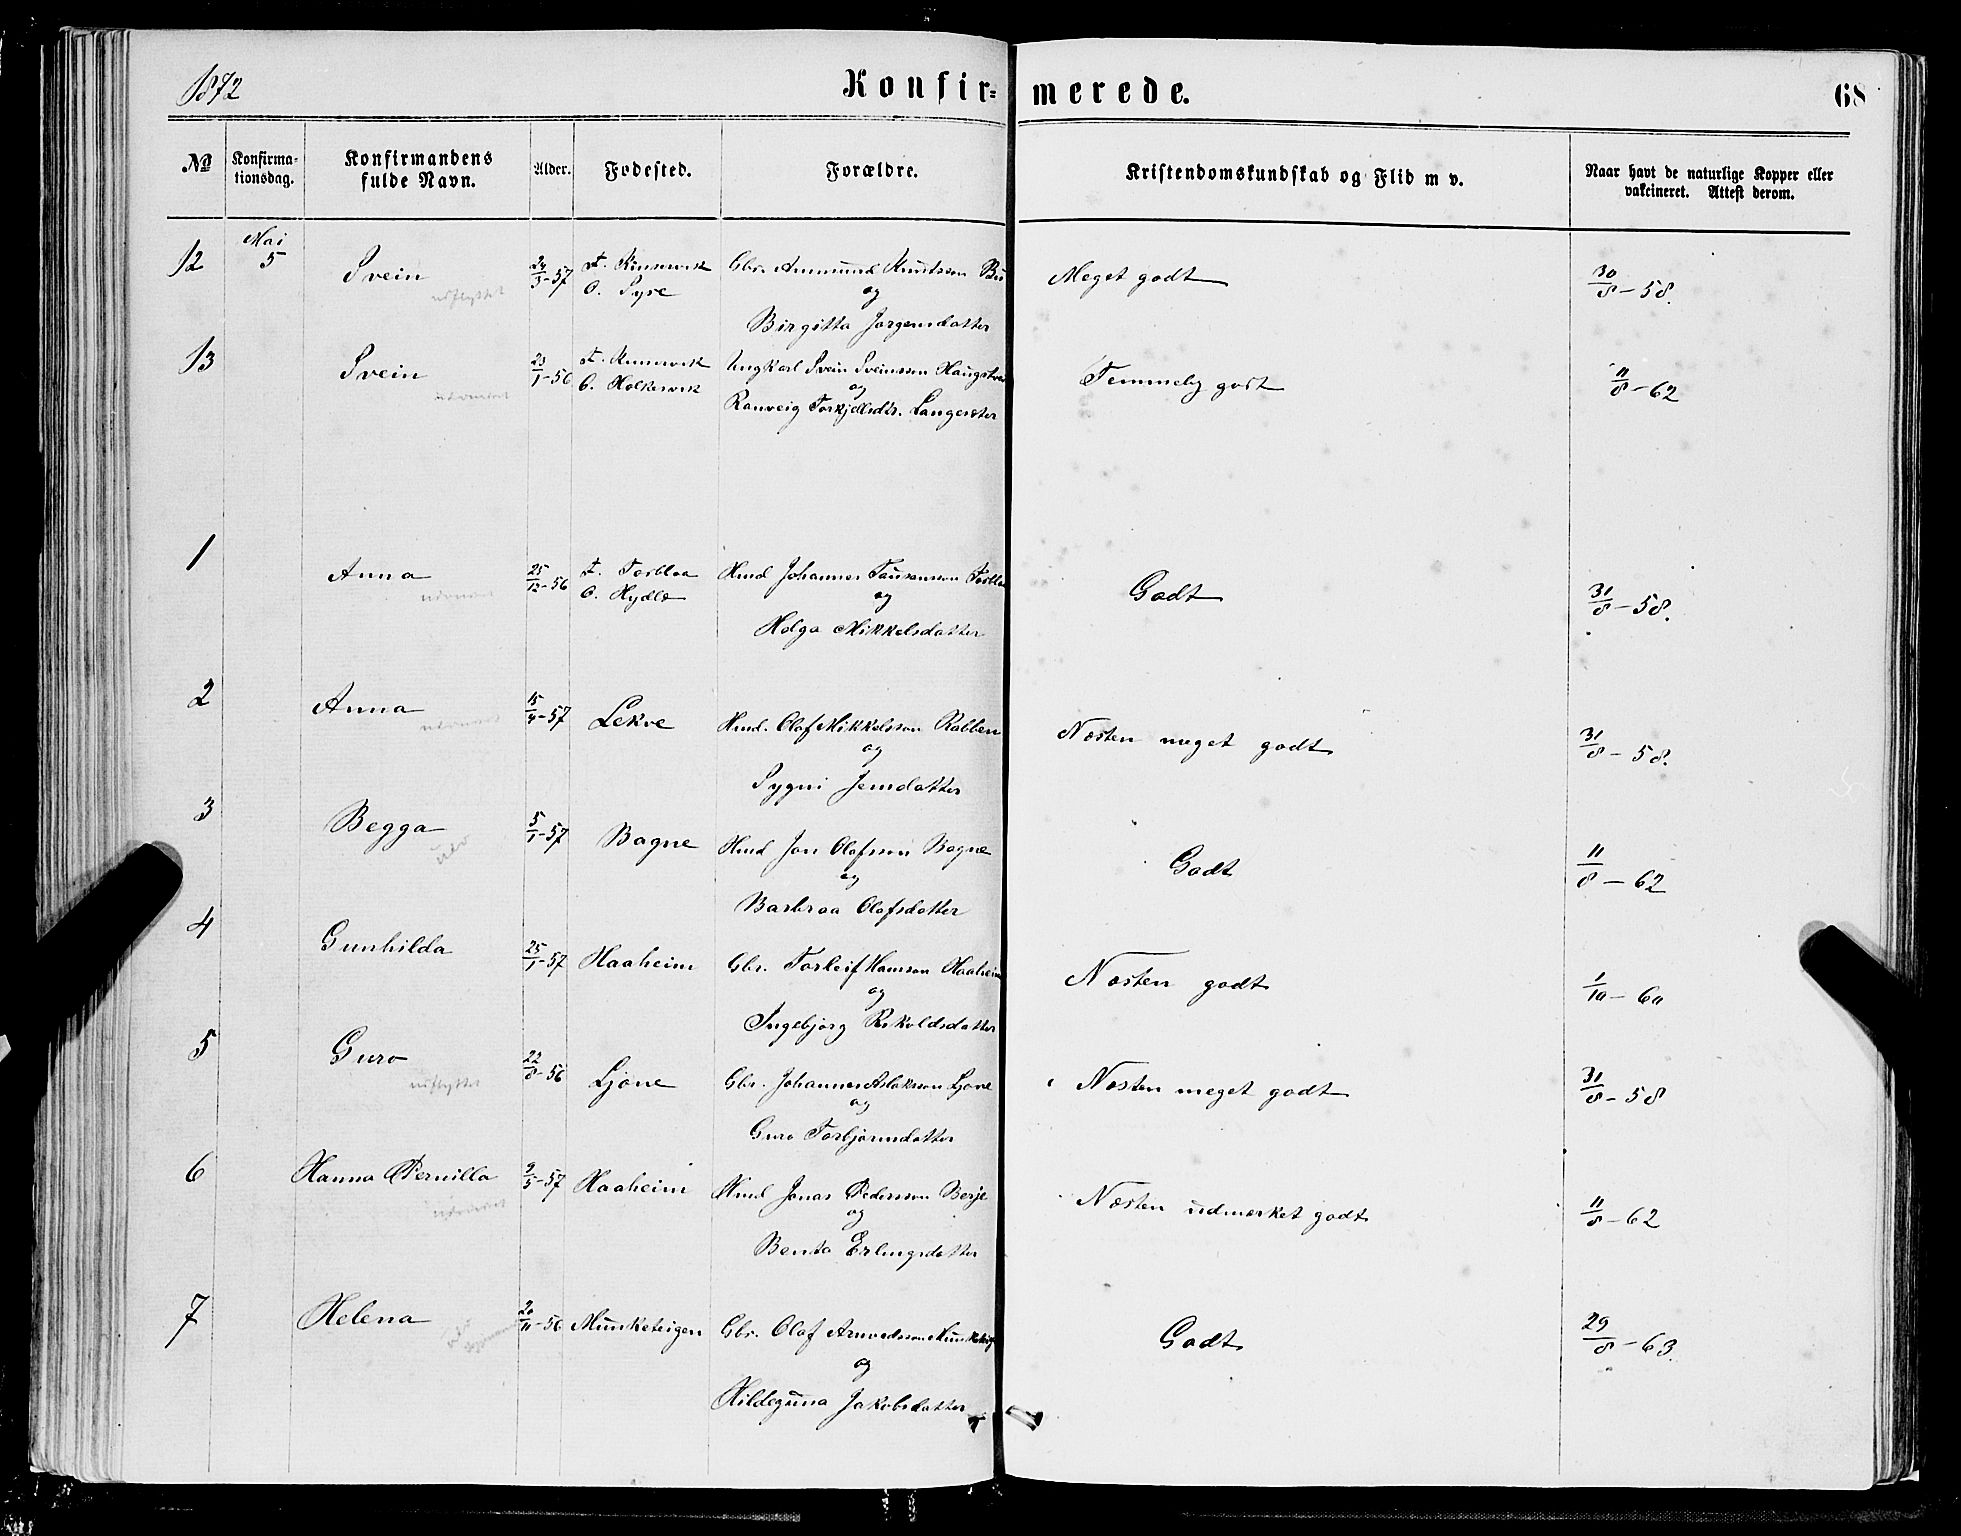 1872
Konfir-
merede.
68
No
Konfirma-
tionsdag.
Konfirmandens
fulde Navn.
Alder.
Fødested.
Forældre.
Kristendomskundskab og Flid m v.
Naar havt de naturlige Kopper eller
vakcineret. Attest derom.
12
Mai
5
Svein
udflyttet
24/3-57
F. Kinservik
O. Syse
Gbr. Ammund Knutsson Bu
og
Birgitta Jørgensdatter
Meget godt
30/8-58.
13
Svein
23/1-56
F. Kinservik
O. Holkesvik
Ungkarl Svein Sveinsson
og
Ranveig Torkjellsdtr. Langesæter
Temmelig godt
11/8-62
1
Anna
25/12-56
F. Torblaa
O. Hydle
Hmd Johannes Torblaa
og
Helga Mikkelsdatter
Godt
31/8-58.
2
Anna
15/4-57
Lekve
Hmd. Olaf Mikkelsson Rabben
og
Sygni Jensdatter
Næsten meget godt
31/8-58.
3
Begga
5/1-57
Bagne
Hmd Jon Olafsson Bagne
og
Barbraa Olafsdatter
Godt
11/8-62
4
Gunhilda
25/1-57
Haaheim
Gbr. Torleif Hansson Haaheim
og
Ingebjørg
Næsten godt
1/10-60
5
Guro
udflyttet
22/8-56
Ljone
Gbr. Johannes Aslaksson Ljone
og
Guro Torbjørnsdatter
Næsten meget godt
31/8-58
6
Hanna Pernilla
9/5-57
Haaheim
Hmd Jonas Pedersson Berje
og
Benta Erlingsdatter
Næsten udmærket godt
11/8-62
7
Helena
20/11-56
Munketeigen
Gbr. Olaf Munketeig
og
Hildeguna Jakobsdatter
Godt
29/8-63